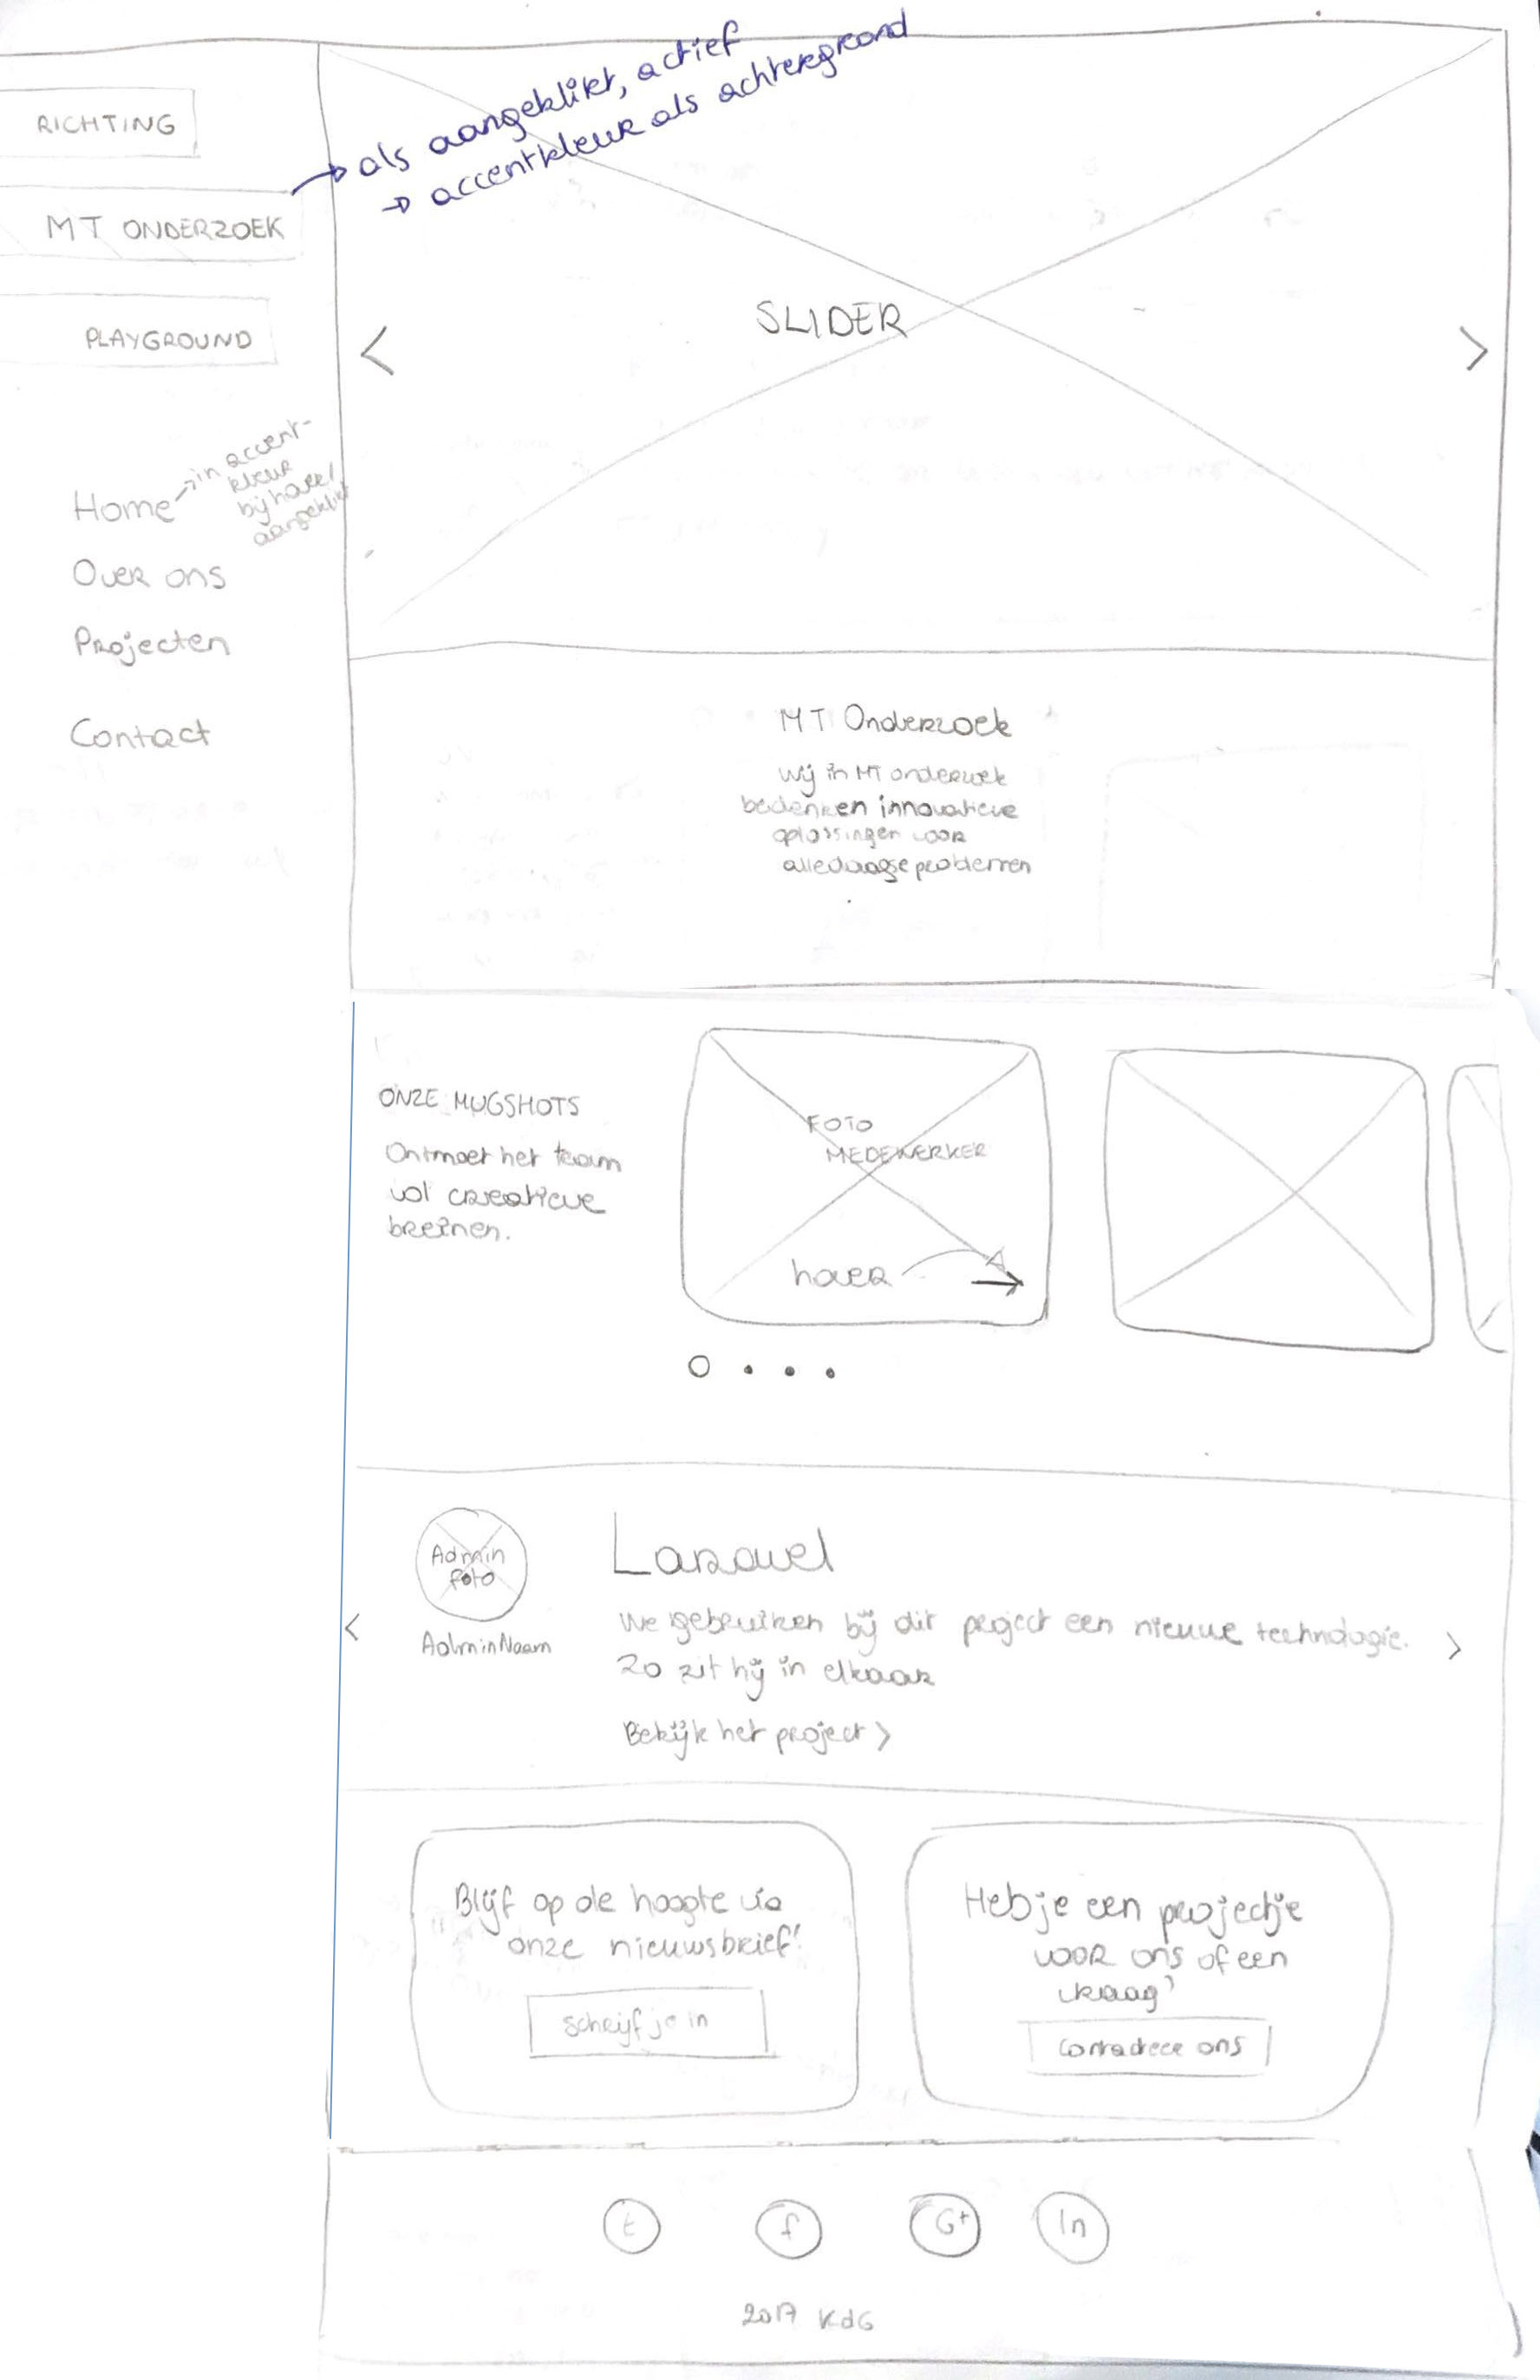 RICHTING
MT ONDERZOEK
PLAYGROUND
→ als aangeklikt, actief
→ accentkleur als achtergrond
Home
→ in accent-
kleur
bij hover/
aangeklikt
Over ons
Projecten
Contact
<
SLIDER
>
MT Onderzoek
Wij in MT onderzoek
bedenken innovatieve
oplossingen voor
alledaagse problemen
ONZE MUGSHOTS
Ontmoet het team
vol creatieve
breinen.
FOTO
MEDEWERKER
hover
Admin
foto
AdminNaam
<
Laravel
We gebruiken bij dit project een nieuwe technologie.
Zo zit hij in elkaar
Bekijk het project >
>
Blijf op de hoogte via
onze nieuwsbrief!
Schrijf je in
Heb je een projectje
voor ons of een
vraag?
Contacteer ons
t
f
G+
In
2017 KdG